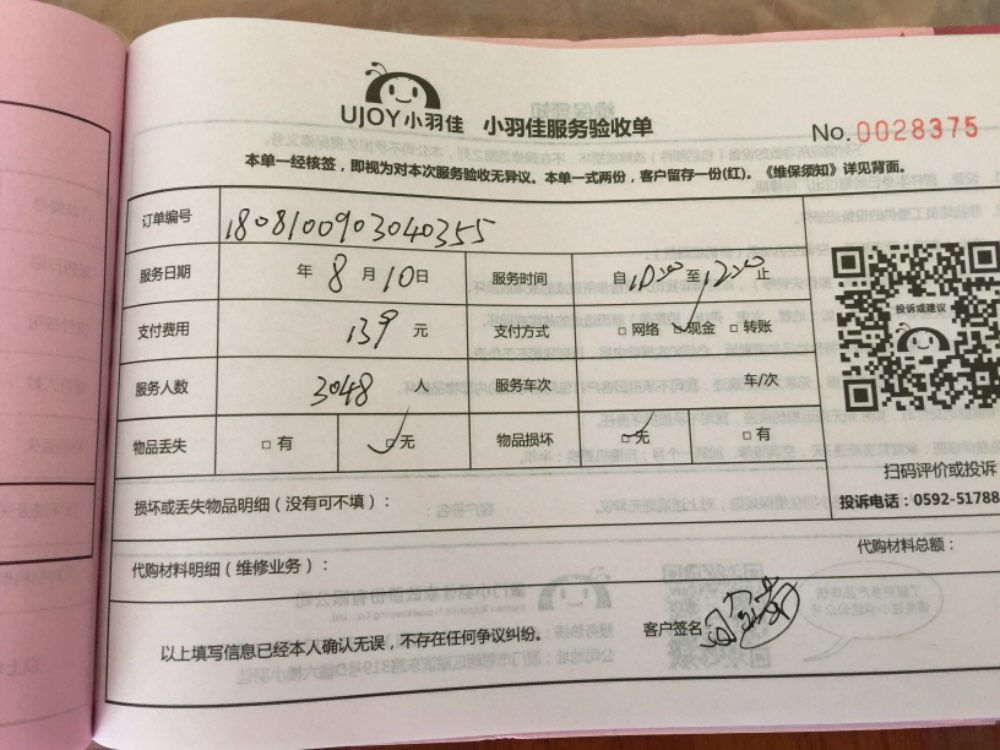 UJOY小羽佳 小羽佳服务验收单
No. 0028375
本单一经核签，即视为对本次服务验收无异议。本单一式两份，客户留存一份(红)。《维保须知》详见背面。
订单编号 180810090304 0355
服务日期 年 8 月 10 日 服务时间 自 至 止
支付费用 139 元 支付方式 □ 网络 □ 现金 □ 转账
服务人数 3048 人 服务车次 车/次
物品丢失 □ 有 □ 无 物品损坏 □ 无 □ 有
投诉或建议
扫码评价或投诉
投诉电话：0592-51788
损坏或丢失物品明细（没有可不填）：
代购材料明细（维修业务）：
代购材料总额：
以上填写信息已经本人确认无误，不存在任何争议纠纷。
客户签名